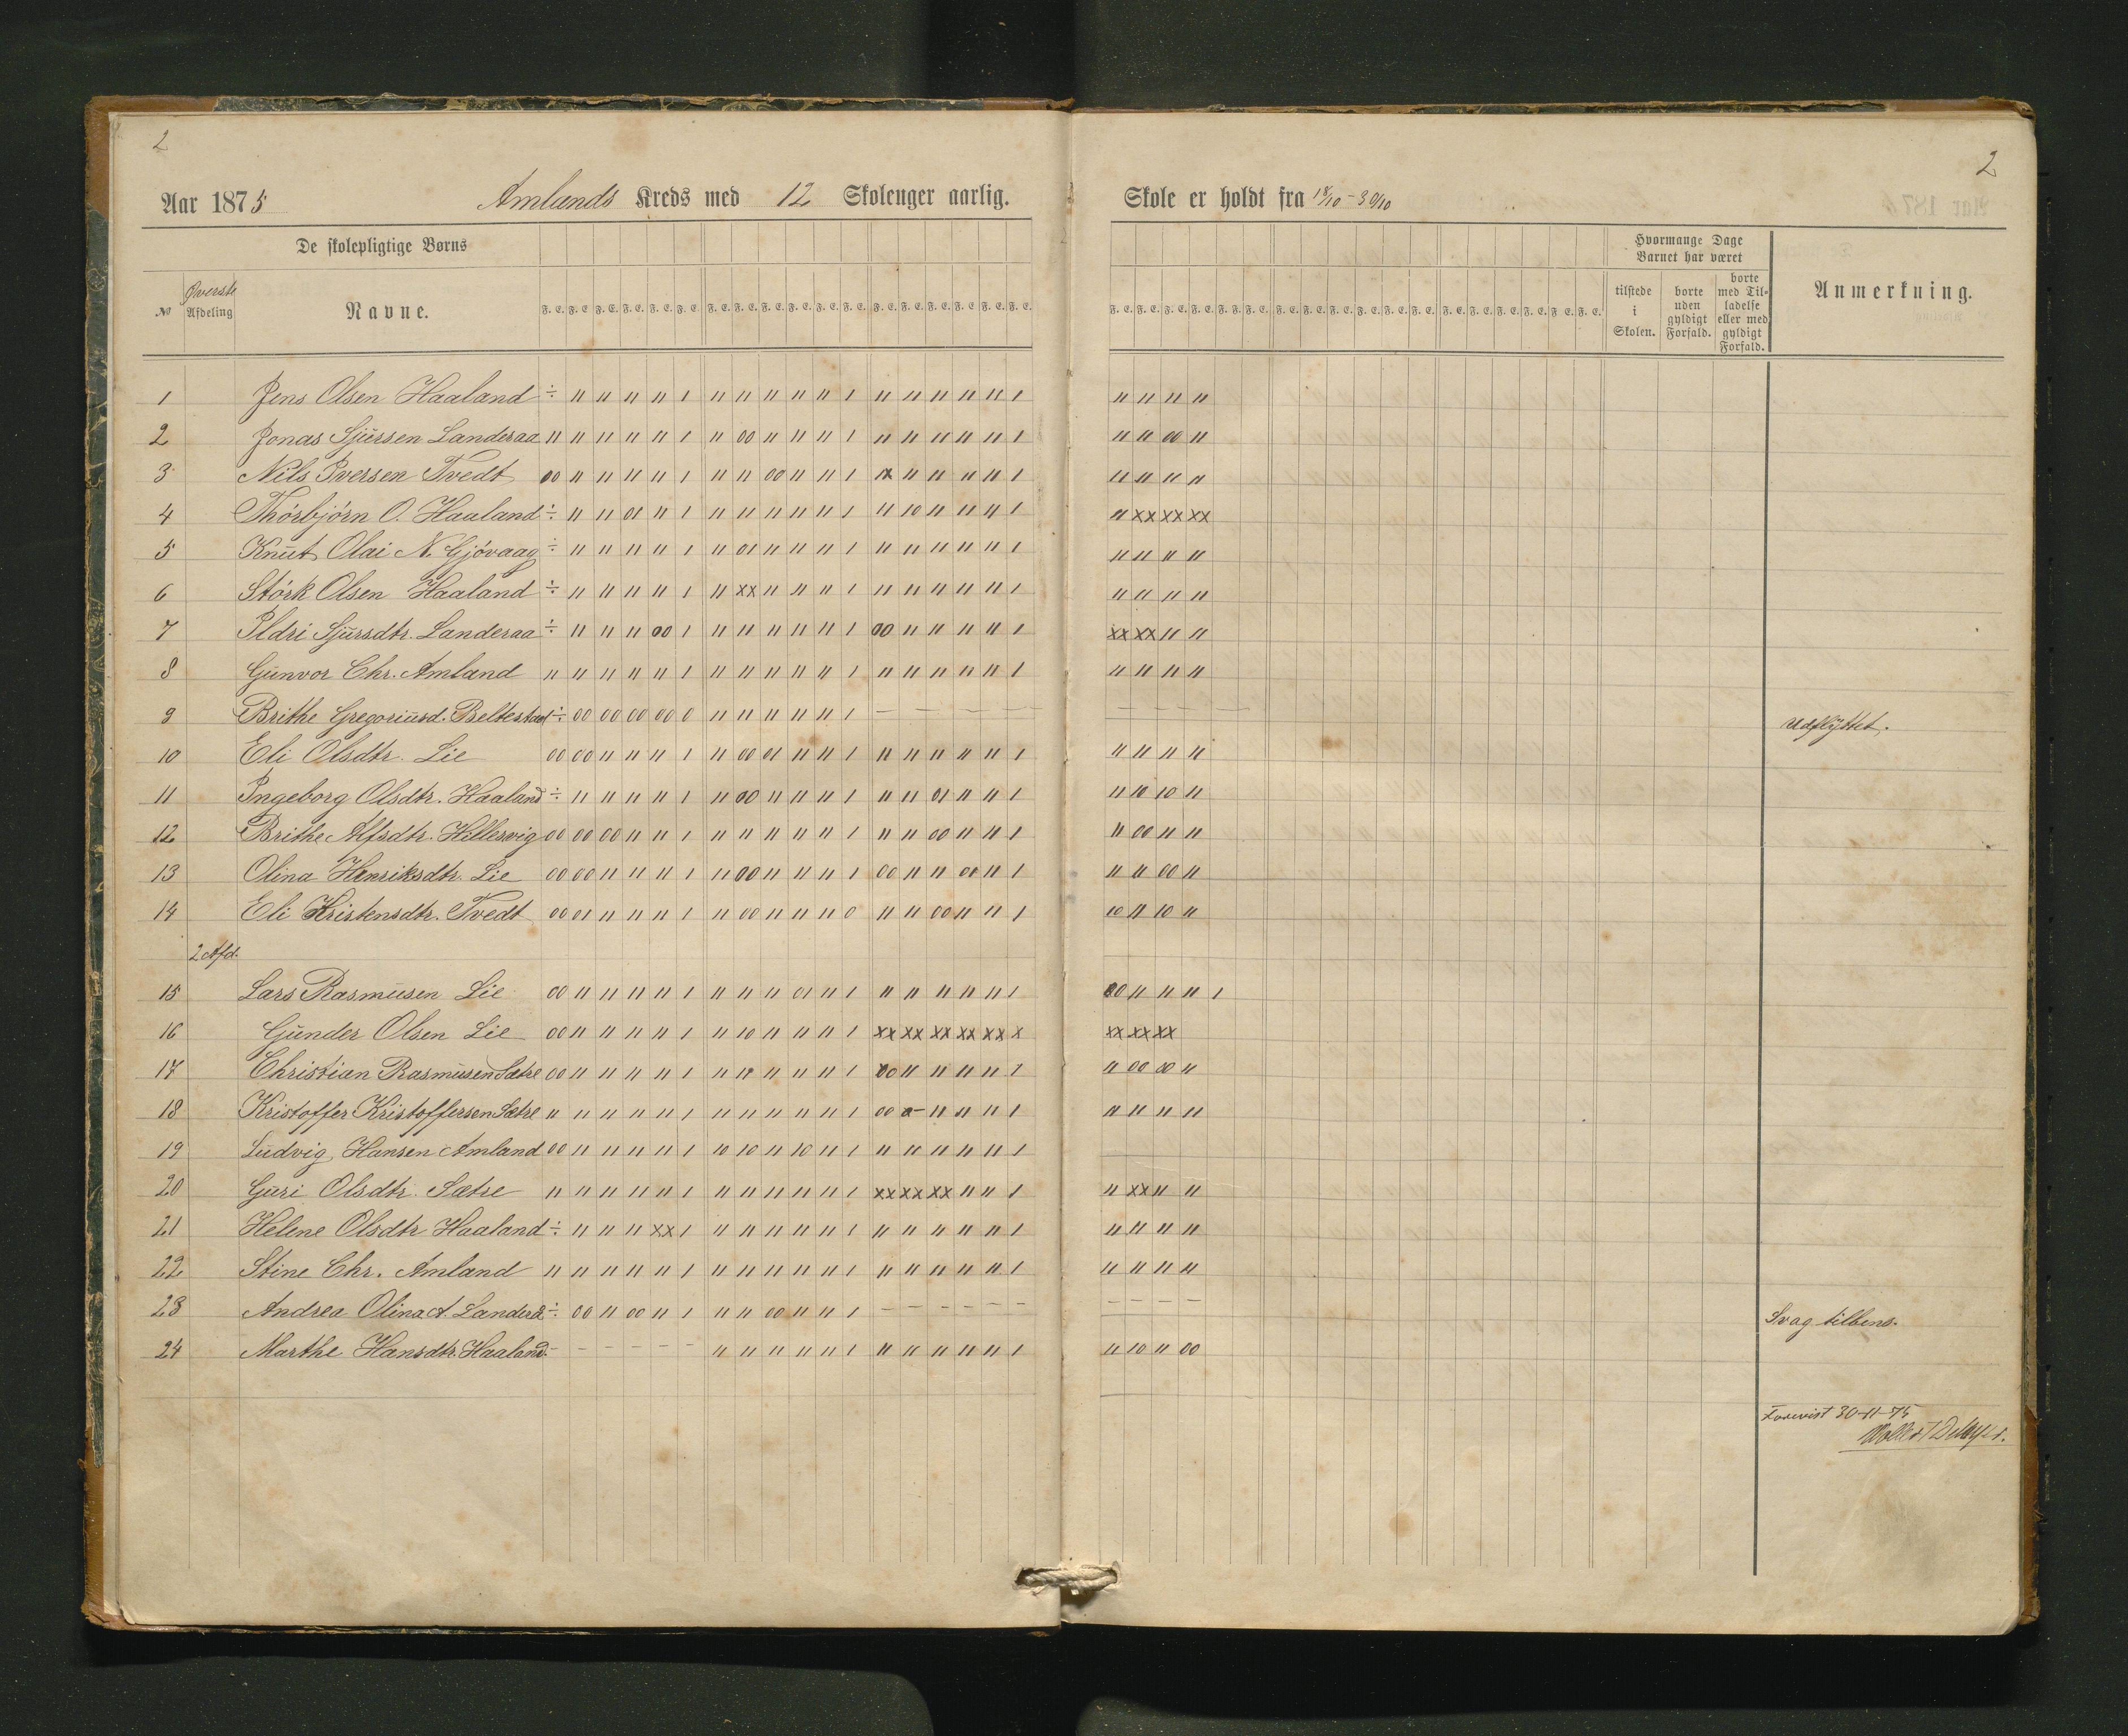 2
Aar 1875 Amlands Kreds med 12 Skolenger aarlig.
De skolepligtige Børns
№ Øverste Afdeling Navne. F. E. F. E. F. E. F. E. F. E. F. E. F. E. F. E. F. E. F. E. F. E. F. E. F. E. F. E. F. E. F. E. F. E. F. E.
1 Jens Olsen Haaland ÷ 11 11 11 11 1 11 11 11 11 11 1 11 11 11 11 11 1
2 Jonas Sjursen Landeraa 11 11 11 11 11 1 11 00 11 11 11 1 11 11 11 11 11 1
3 Nils Iversen Tvedt 00 11 11 11 11 1 11 11 00 11 11 1 x 11 11 11 11 1
4 Thórbjórn O. Haaland ÷ 11 11 01 11 1 11 11 11 11 11 1 11 10 11 11 11 1
5 Knut Olai N. Gjóvaag ÷ 11 11 11 11 1 11 01 11 11 11 1 11 11 11 11 11 1
6 Stórk Olsen Haaland ÷ 11 11 11 11 1 11 xx 11 11 11 1 11 11 11 11 11 1
7 Ildri Sjursdtr. Landeraa ÷ 11 11 11 00 1 11 11 11 11 11 1 00 11 11 11 11 1
8 Gunvor Chr. Amland 11 11 11 11 11 1 11 11 11 11 11 1 11 11 11 11 11 1
9 Brithe Gregoriusd. Beltestad ÷ 00 00 00 00 0 11 11 11 11 11 1 — — — — — —
10 Eli Olsdtr. Lie 00 00 11 11 11 1 11 00 01 11 11 1 11 11 11 11 11 1
11 Ingeborg Olsdtr. Haaland ÷ 11 11 11 11 1 11 00 11 11 11 1 11 11 01 11 11 1
12 Brithe Alfsdtr. Hillesvig 00 00 00 11 11 1 11 11 11 11 11 1 11 11 00 11 11 1
13 Olina Henriksdtr. Lie 00 00 11 11 11 1 11 00 11 11 11 1 00 11 11 01 11 1
14 Eli Kristensdtr. Tvedt 00 01 11 11 11 1 11 00 11 11 11 0 11 11 00 11 11 1
2 Afd.
15 Lars Rasmusen Lie 00 11 11 11 11 1 11 11 11 01 11 1 11 11 11 11 11 1
16 Gunder Olsen Lie 00 11 11 11 11 1 11 10 11 11 11 1 xx xx xx xx xx x
17 Christian Rasmusen Sætre 00 11 11 11 11 1 11 11 11 11 11 1 00 11 11 11 11 1
18 Kristoffer Kristoffersen Sætre 11 11 11 11 11 1 11 11 11 11 11 1 00 0- 11 11 11 1
19 Ludvig Hansen Amland 00 11 11 11 11 1 10 10 11 10 11 1 11 11 11 11 11 1
20 Guri Olsdtr. Sætre 11 11 11 11 11 1 11 11 11 11 11 1 xx xx xx 11 11 1
21 Helene Olsdtr Haaland ÷ 11 11 11 xx 1 11 11 11 11 11 1 11 11 11 11 11 1
22 Stine Chr. Amland 11 11 11 11 11 1 11 11 11 11 11 1 11 11 11 11 11 1
23 Andrea Olina A. Landerå ÷ 00 11 00 11 1 11 11 00 11 11 1 — — — — — —
24 Marthe Hansdtr. Haaland. — — — — — — 11 11 11 11 11 1 11 11 11 11 11 1
2
Skole er holdt fra 18/10 - 30/10
Hvormange Dage Barnet har været
F. E. F. E. F. E. F. E. F. E. F. E. F. E. F. E. F. E. F. E. F. E. F. E. F. E. F. E. F. E. F. E. F. E. F. E. tilstede i Skolen. borte uden gyldigt Forfald. borte med Tilladelse eller med gyldigt Forfald. Anmerkning.
11 11 11 11
11 11 00 11
11 11 11 11
11 xx xx xx
11 11 11 11
11 11 11 11
xx xx 11 11
11 11 11 11
— — — — — Udflyttet.
11 11 11 11
11 10 10 11
11 00 11 11
11 11 00 11
10 11 10 11
00 11 11 11 1
xx xx xx
11 00 00 11
11 11 11 11
11 xx 11 11
11 11 11 11
11 11 11 11
— — — — Svag tilbens.
11 10 11 00
Forevist 30-11-75